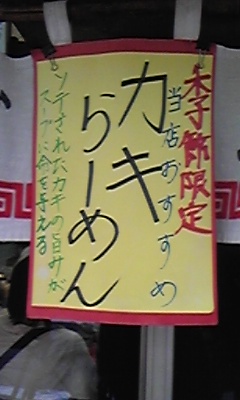 季節限定
当店おすすめ
カキらーめん
ソテされたカキの旨みが
スープに命を与える